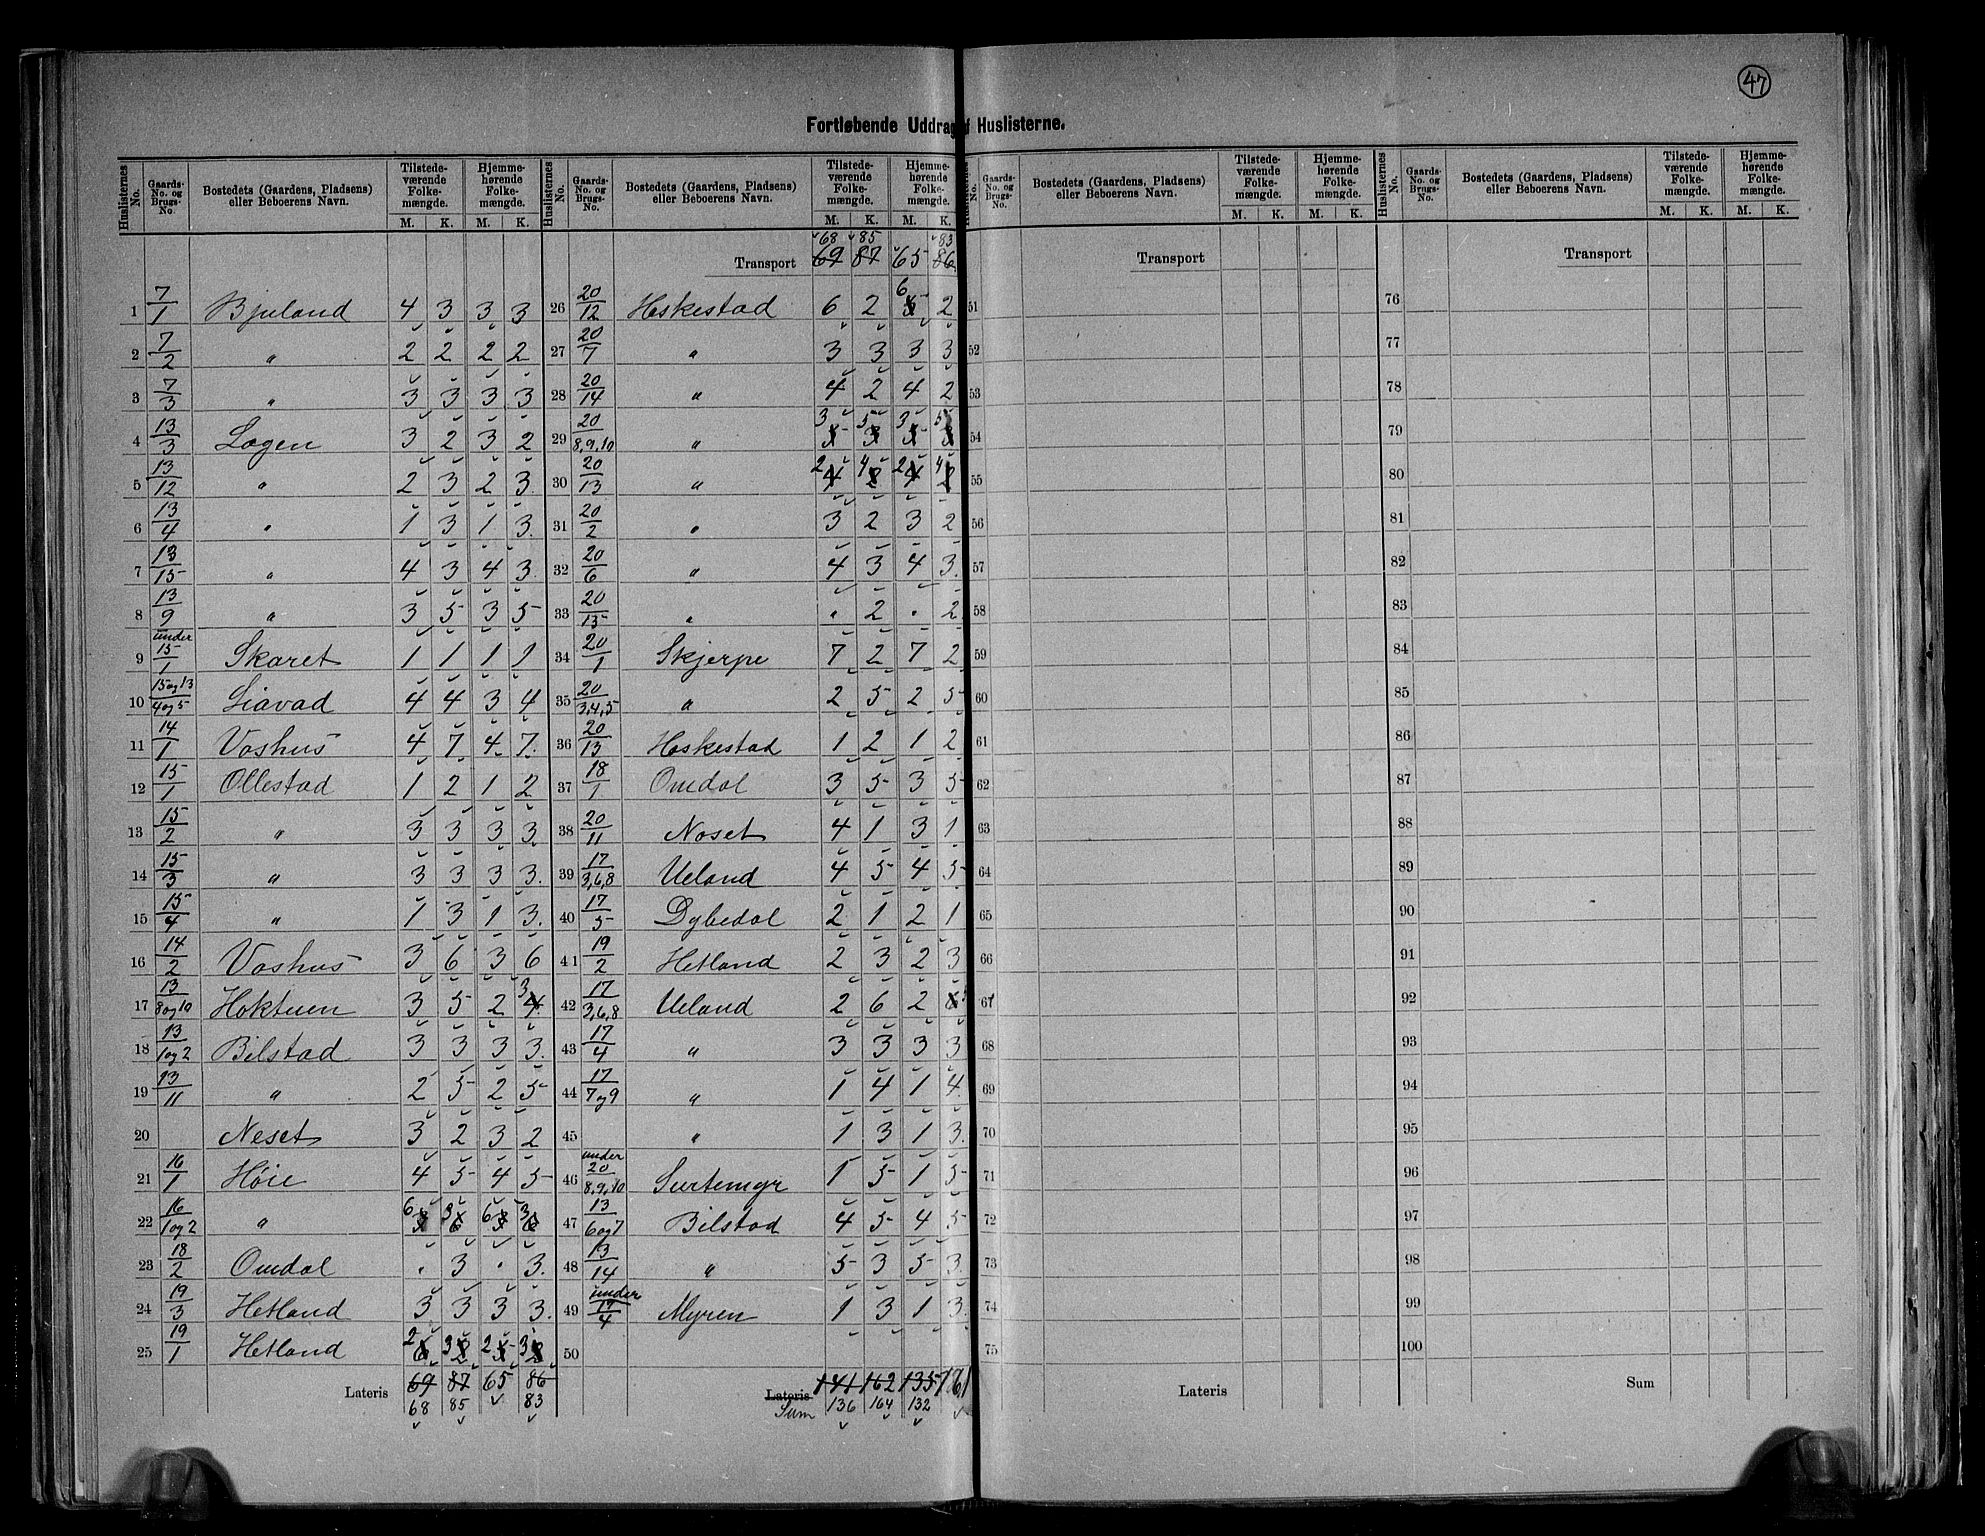 47
Fortløbende Uddrag f Huslisterne.
Huslisternes No. Gaards-No. og Brugs-No. Bostedets (Gaardens, Pladsens) eller Beboerens Navn. Tilstedeværende Folkemængde. M. K. Hjemmehørende Folkemængde. M. K.
1 7/1 Bjuland 4 3 3 3
2 7/2 " 2 2 2 2
3 7/3 " 3 3 3 3
4 13/3 Lagen 3 2 3 2
5 13/12 " 2 3 2 3
6 13/4 " 1 3 1 3
7 13/15 " 4 3 4 3
8 13/9 " 3 5 3 5
9 under 15/1 Skaret 1 1 1 1
10 15 og 13/4 og 5 Liavad 4 4 3 4
11 14/1 Vashus 4 7 4 7
12 15/1 Ollestad 1 2 1 2
13 15/2 " 3 3 3 3
14 15/3 " 3 3 3 3
15 15/4 " 1 3 1 3
16 14/2 Vashus 3 6 3 6
17 13/8 og 10 Hoktuen 3 5 2 3 4
18 13/1 og 2 Bilstad 3 3 3 3
19 13/11 " 2 5 2 5
20 Neset 3 2 3 2
21 16/1 Høie 4 5 4 5
22 16/1 og 2 " 6 3 6 3
23 18/2 Omdal . 3 . 3
24 19/3 Hetland 3 3 3 3
25 19/1 Hetland 2 3 2 3
Lateris 69 87 65 86
68 85 83
Huslisternes No. Gaards-No. og Brugs-No. Bostedets (Gaardens, Pladsens) eller Beboerens Navn. Tilstedeværende Folkemængde. M. K. Hjemmehørende Folkemængde. M. K.
68 85 83
Transport 69 87 65 86
26 20/12 Heskestad 6 2 6 5 2
27 20/7 " 3 3 3 3
28 20/14 " 4 2 4 2
29 20/8,9,10 " 3 5 5 3 3 5 5 3
30 20/13 " 2 4 4 2 2 4 4 2
31 20/2 " 3 2 3 2
32 20/6 " 4 3 4 3
33 20/15 " . 2 . 2
34 20/1 Skjerpe 7 2 7 2
35 20/3,4,5 " 2 5 2 5
36 20/13 Heskestad 1 2 1 2
37 18/1 Omdal 3 5 3 5
38 20/11 Noset 4 1 3 1
39 17/3,6,8 Ueland 4 5 4 5
40 17/5 Dybedal 2 1 2 1
41 19/2 Hetland 2 3 2 3
42 17/3,6,8 Ueland 2 6 2
43 17/4 " 3 3 3 3
44 17/7 og 9 " 1 4 1 4
45 " 1 3 1 3
46 under 20/8,9,10 Surtemyr 1 5 1 5
47 13/6 og 7 Bilstad 4 5 4 5
48 13/14 " 5 3 5 3
49 under 17/4 Myren 1 3 1 3
50
Lateris 141 162 135 161
Sum 136 164 132
No. Gaards-No. og Brugs-No. Bostedets (Gaardens, Pladsens) eller Beboerens Navn. Tilstedeværende Folkemængde. M. K. Hjemmehørende Folkemængde. M. K.
Transport
51
52
53
54
55
56
57
58
59
60
61
62
63
64
65
66
67
68
69
70
71
72
73
74
75
Lateris
Huslisternes No. Gaards-No. og Brugs-No. Bostedets (Gaardens, Pladsens) eller Beboerens Navn. Tilstedeværende Folkemængde. M. K. Hjemmehørende Folkemængde. M. K.
Transport
76
77
78
79
80
81
82
83
84
85
86
87
88
89
90
91
92
93
94
95
96
97
98
99
100
Sum